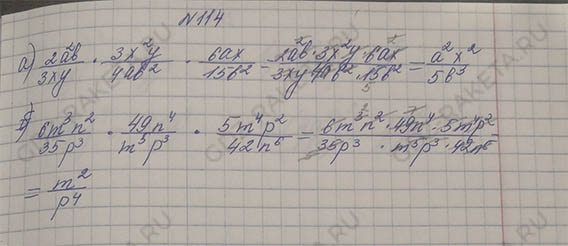 №114
a) 2a²b/3xy · 3x²y/4ab² · 6ax/15b² = 2a²b·3x²y·6ax/3xy·4ab²·15b² = a²x²/5b³
б) 6m³n²/35p³ · 49n⁴/m⁵p³ · 5m⁴p²/42n⁶ = 6m³n²·49n⁴·5m⁴p²/35p³·m⁵p³·42n⁶
= m²/p⁴